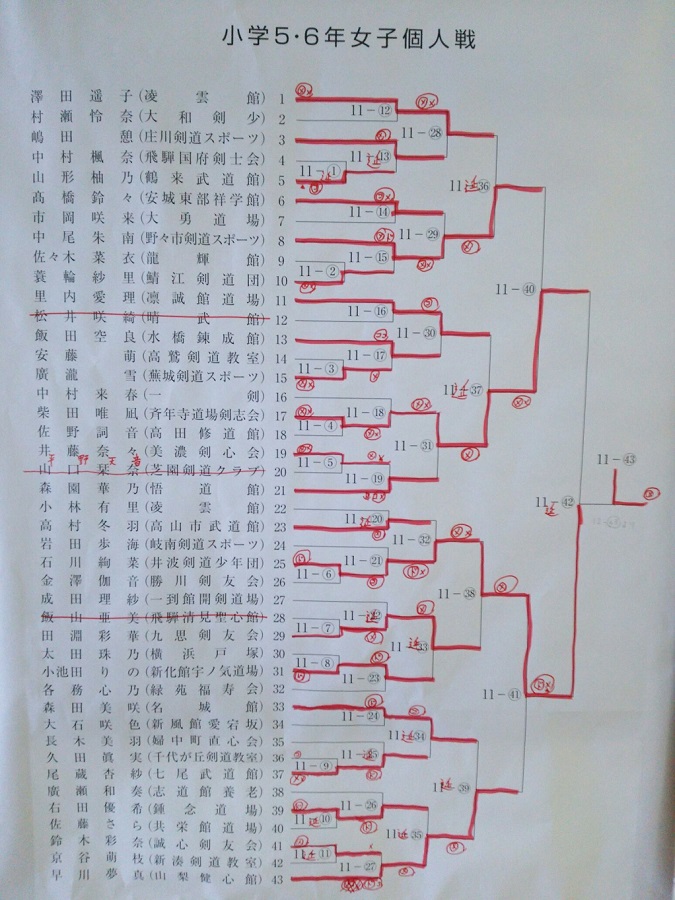 小学5・6年女子個人戦
澤田遥子(凌雲館) 1
村瀬怜奈(大和剣少) 2
嶋田憩(庄川剣道スポーツ) 3
中村楓奈(飛騨国府剣士会) 4
山形柚乃(鶴来武道館) 5
髙橋鈴々(安城東部祥学館) 6
市岡咲来(大勇道場) 7
中尾朱南(野々市剣道スポーツ) 8
佐々木菜衣(龍輝館) 9
蓑輪紗里(鯖江剣道団) 10
里内愛理(凛誠館道場) 11
松井咲綺(晴武館) 12
飯田空良(水橋錬成館) 13
安藤萌(高鷲剣道教室) 14
廣瀧雪(蕪城剣道スポーツ) 15
中村来春(一剣) 16
柴田唯凪(斉年寺道場剣志会) 17
佐野詞音(高田修道館) 18
井藤奈々(美濃剣心会) 19
平野天音
山口栞奈(芝園剣道クラブ) 20
森園華乃(悟道館) 21
小林有里(凌雲館) 22
高村冬羽(高山市武道館) 23
岩田歩海(岐南剣道スポーツ) 24
石川絢菜(井波剣道少年団) 25
金澤伽音(勝川剣友会) 26
成田理紗(一到館開剣道場) 27
飯山亜美(飛騨清見聖心館) 28
田淵彩華(九思剣友会) 29
太田珠乃(横浜戸塚) 30
小池田りの(新化館宇ノ気道場) 31
各務心乃(緑苑福寿会) 32
森田美咲(名城館) 33
大石咲色(新風館愛宕坂) 34
長木美羽(婦中町直心会) 35
久田眞実(千代が丘剣道教室) 36
尾蔵杏紗(七尾武道館) 37
廣瀬和奏(志道館養老) 38
石田優希(錬念道場) 39
佐藤さら(共栄館道場) 40
鈴木彩奈(誠心剣友会) 41
京谷萌枝(新湊剣道教室) 42
早川夢真(山梨健心館) 43
11-①
11-②
11-③
11-④
11-⑤
11-⑥
11-⑦
11-⑧
11-⑨
11-⑩
11-⑪
11-⑫
11-⑬
11-⑭
11-⑮
11-⑯
11-⑰
11-⑱
11-⑲
11-⑳
11-㉑
11-㉒
11-㉓
11-㉔
11-㉕
11-㉖
11-㉗
11-㉘
11-㉙
11-㉚
11-㉛
11-㉜
11-㉝
11-㉞
11-㉟
11-㊱
11-㊲
11-㊳
11-㊴
11-㊵
11-㊶
11-㊷
11-㊸